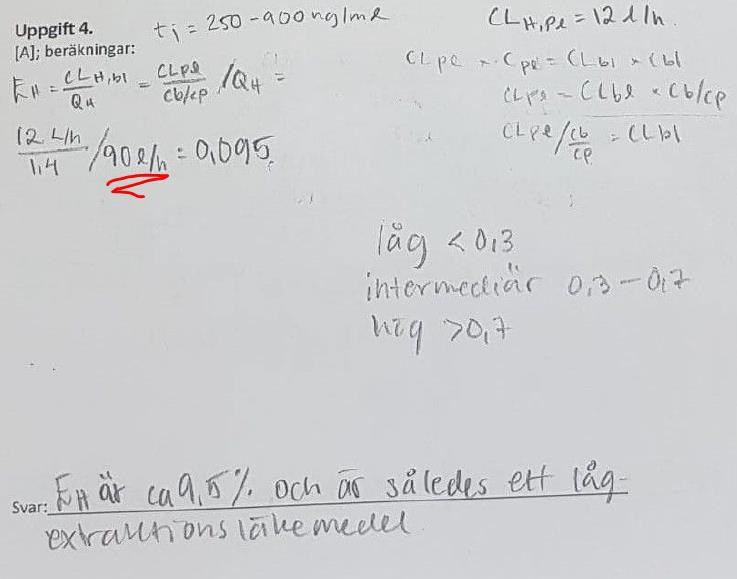 Uppgift 4.
ti = 250-900 ng/ml
CLH,pl = 12 l/h.
[A]; beräkningar:
EH = CLH,bl / QH = CLpl / Cb/Cp / QH =
CLpl × Cpl = CLbl × Cbl
CLpl = CLbl × Cb/Cp
CLpl / Cb/Cp = CLbl
12 L/h / 1,4 / 90 l/h = 0,095.
låg < 0,3
intermediär 0,3 - 0,7
hög > 0,7
Svar: EH är ca 9,5% och är således ett låg-
extraktionsläkemedel.